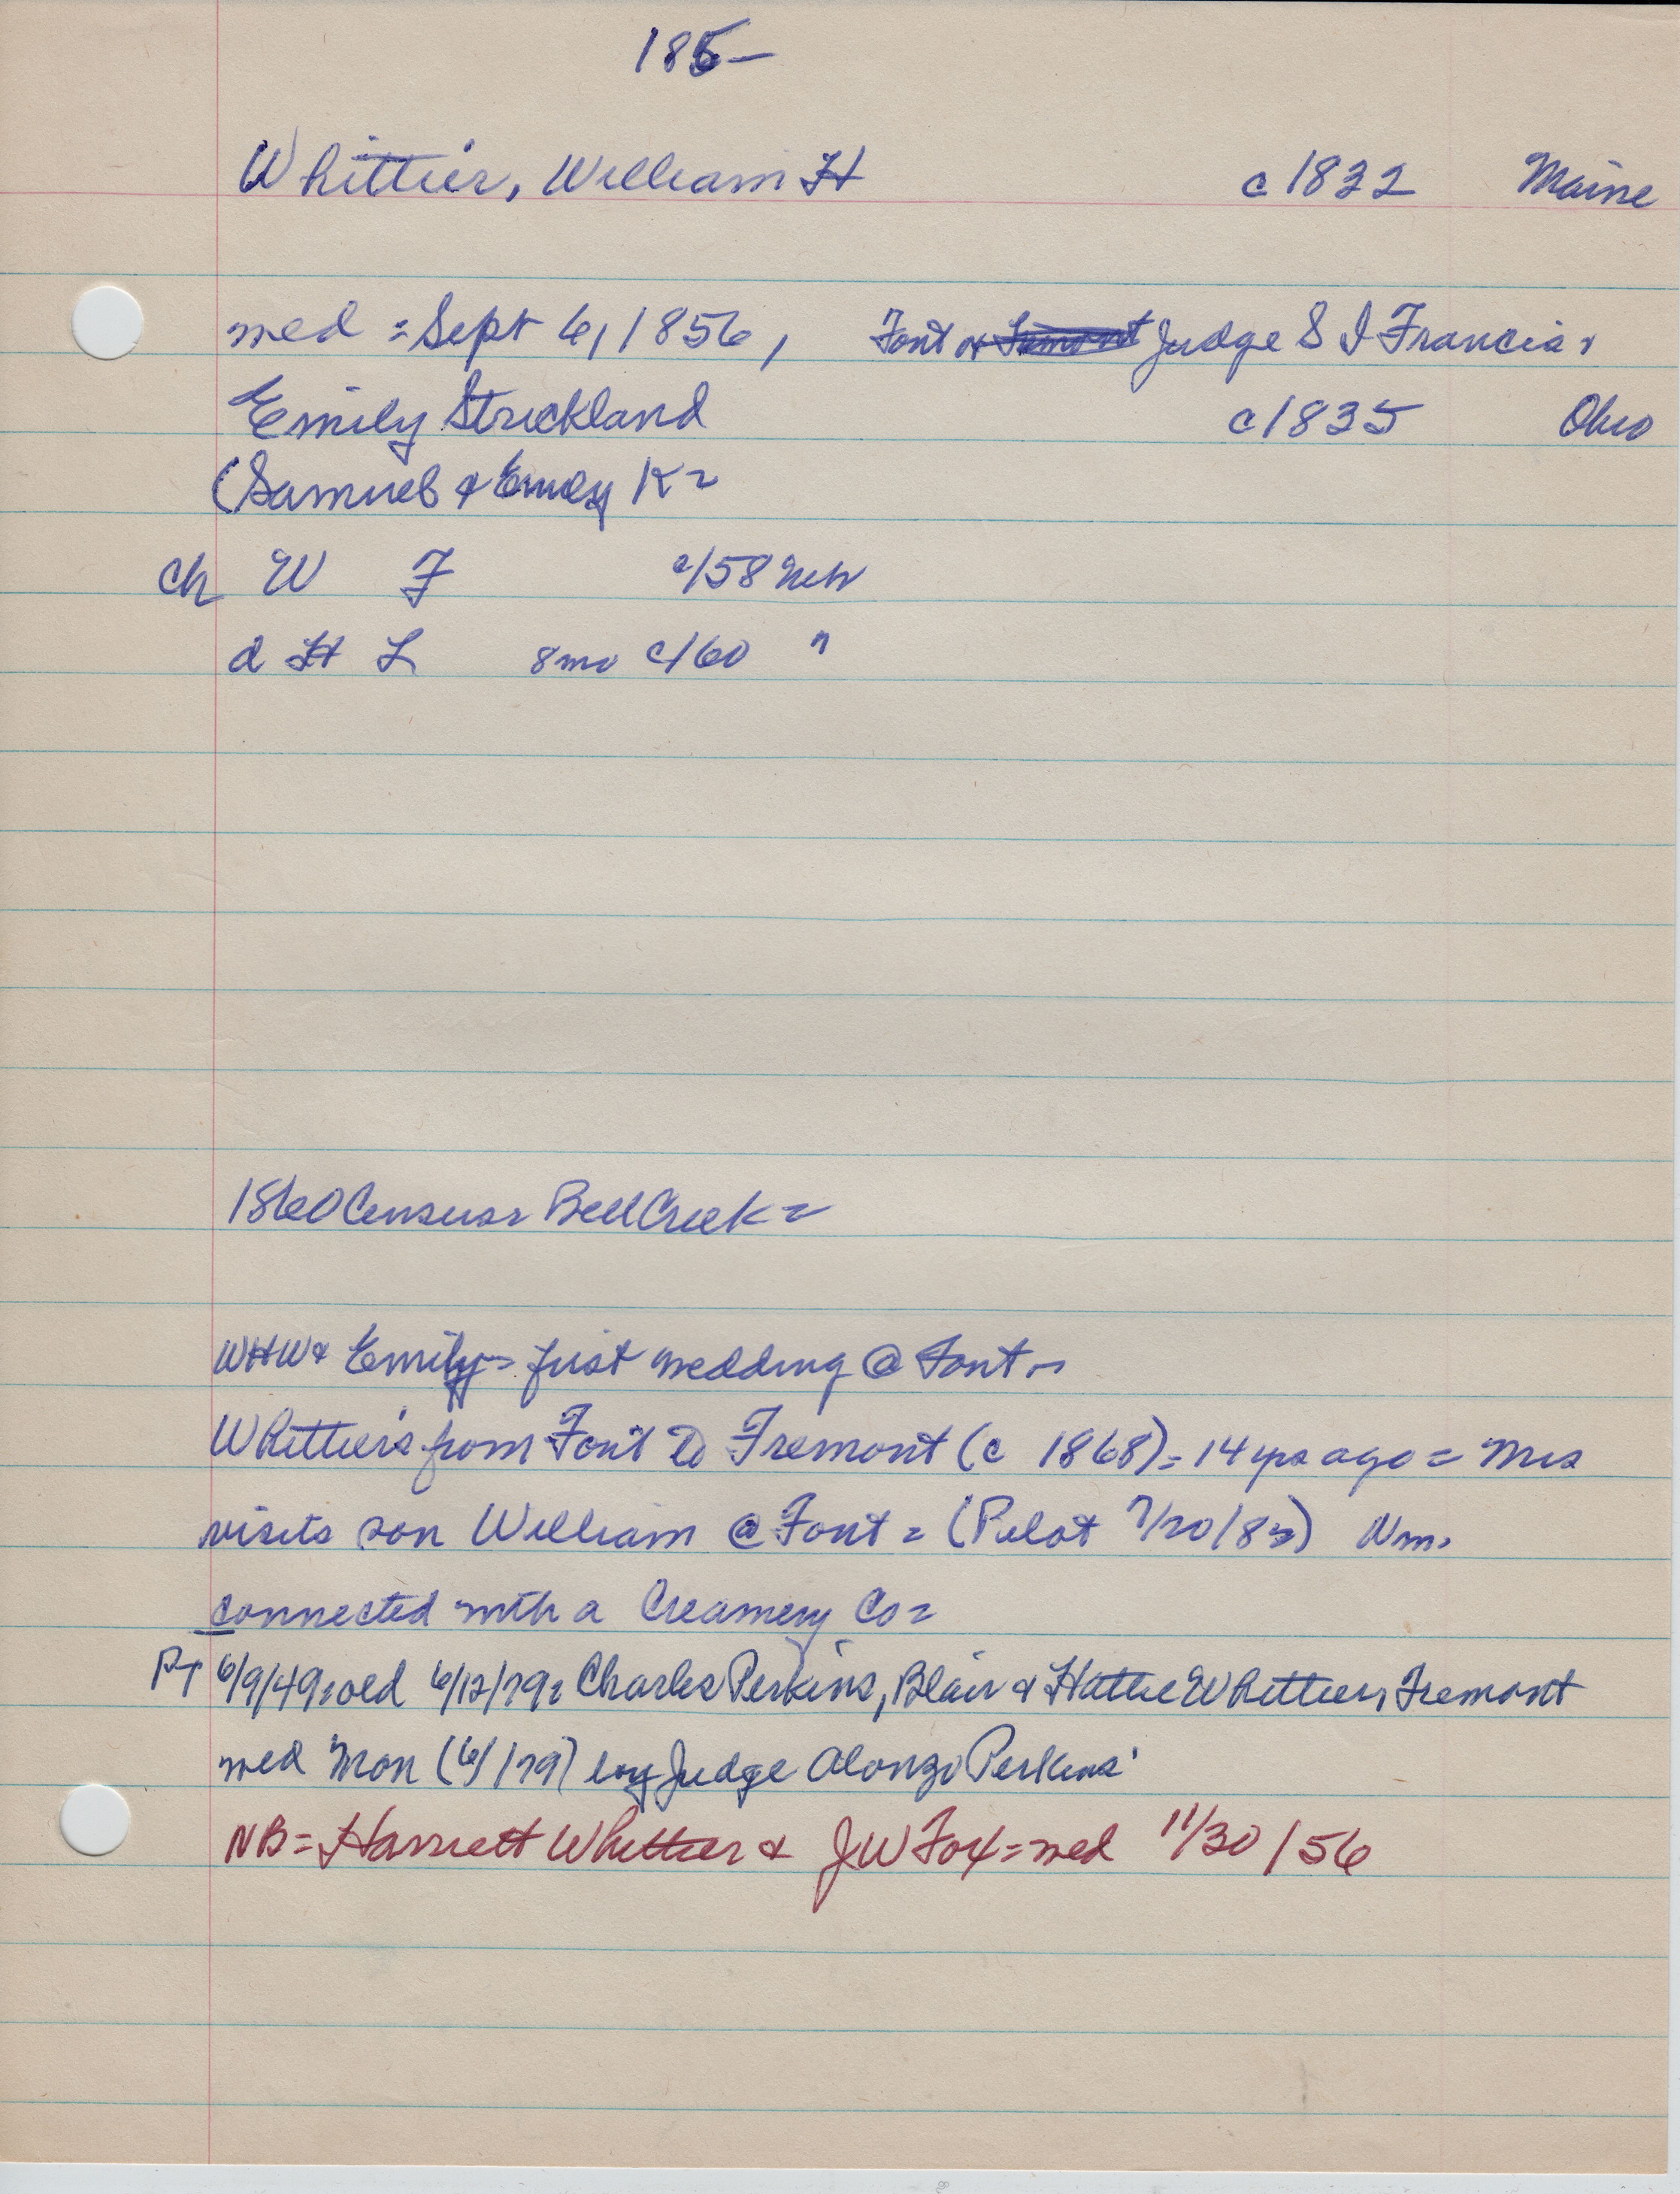 185-
Whittier, William H c 1832 Maine
med = Sept 6, 1856, Font or Judge S I Francis,
Emily Strickland c 1835 Ohio
(Samuel & Emily K =
Ch W F c/58 Neb
d H L 8mo c/60 "
1860 Census = Bell Creek =
WHW & Emily = first wedding @ Font =
Whittier's from Font to Fremont (c 1868) = 14 yrs ago = Mrs
visits son William @ Font = (Pilot 7/20/82) Wm.
connected with a Creamery Co =
PT 6/9/49 = old 6/12/79 = Charles Perkins, Blair & Hattie Whittier, Fremont
med Mon (6/ /79) by Judge Alonzo Perkins'
NB = Harriett Whittier & J W Fox = med 11/30/56